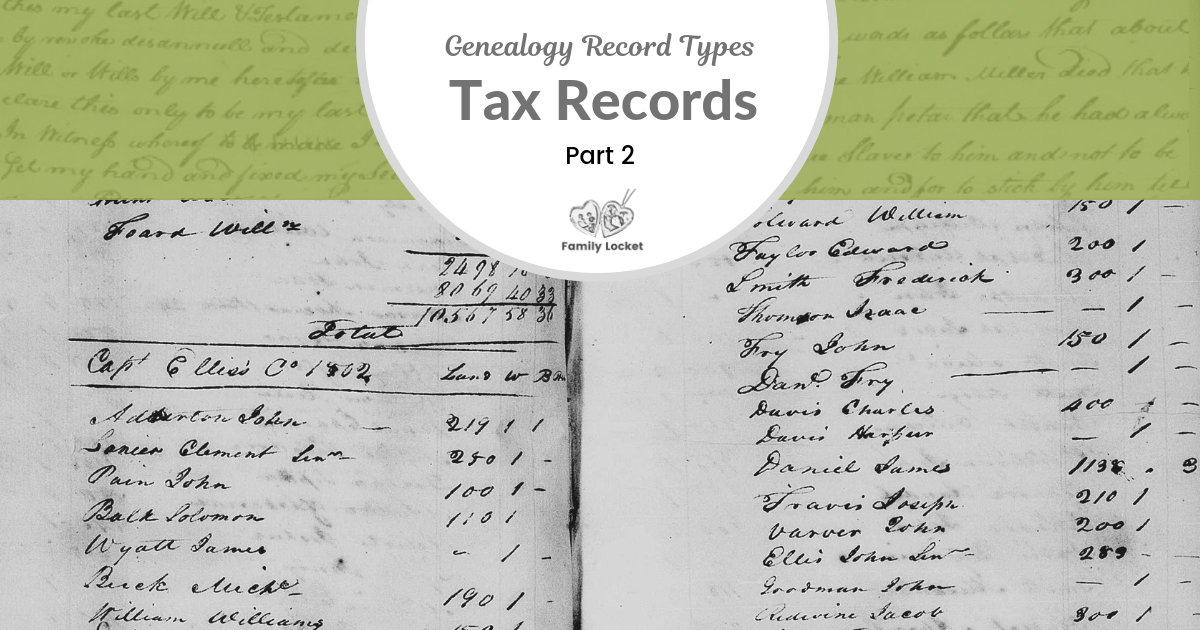 this my last Will & Testame
by revoke desannull and de
Will or Wills by me heretofore
clare this only to be my last
In Witness whereof
Set my hand and fixed my
words as follows that about
William Miller died that
man petar that he had alwa
Slaves to him and not to be
him and for to stick by him
Genealogy Record Types
Tax Records
Part 2
Family Locket
Foard Willm
2498
8069 40 33
10567 58 36
Total
Capt Ellis's Co 1802 Land W B
Adderton John — 219 1 1
Lanier Clement Senr 250 1 -
Pain John 100 1 -
Balk Solomon 110 1
Wyatt James - 1 -
Buck Michl 190 1 -
William Williams
William 150 1 —
Taylor Edward 200 1
Smith Frederick 300 1 -
Thomson Isaac — — 1
Fry John 150 1 -
Danl. Fry — — 1
Davis Charles 400 - -
Davis Harpur — 1 -
Daniel James 1138 . 3
Travis Joseph 210 1
Varver John 200 1
Ellis John Senr 289 -
Goodman John — 1
Redwine Jacob 300 1 -